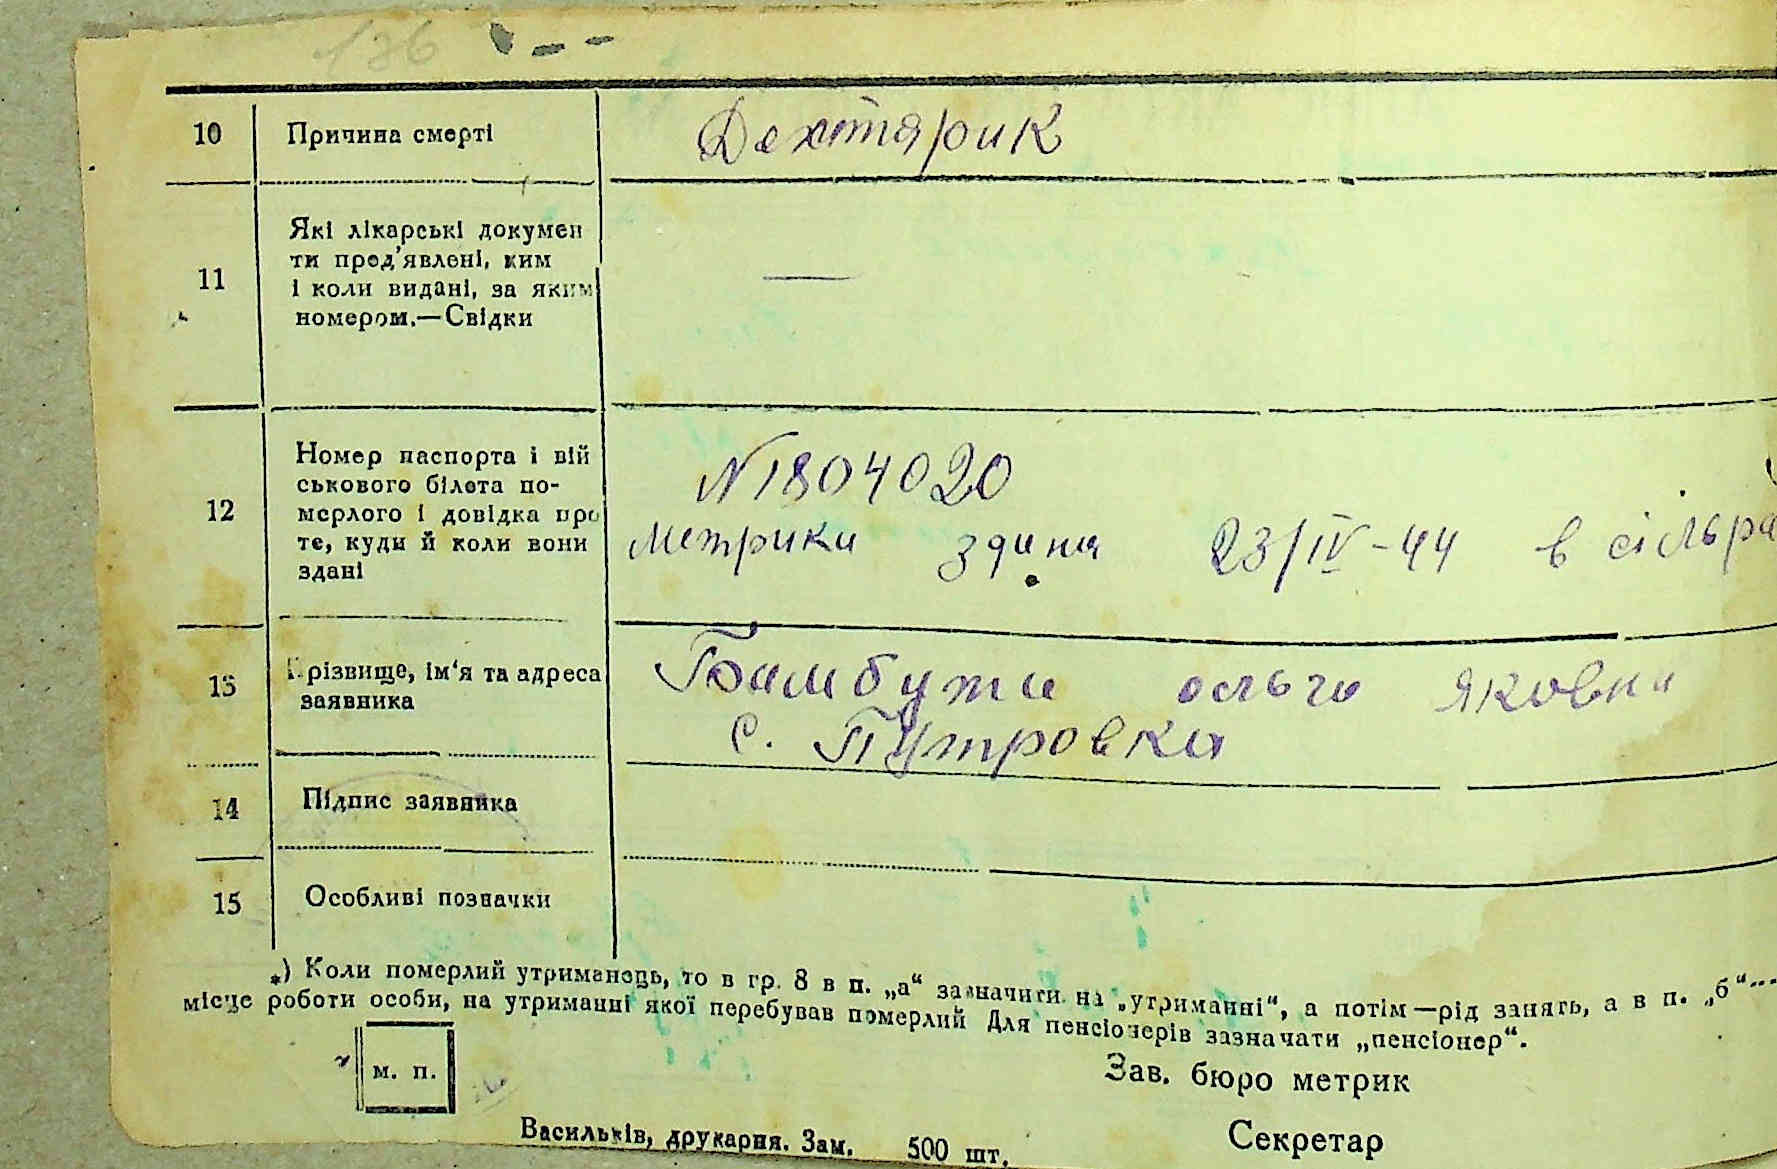 136
10 Причина смерті Дехтярик
11 Які лікарські докумен
ти пред'явлені, ким
і коли видані, за яким
номером.—Свідки —
12 Номер паспорта і вій
ськового білета по-
мерлого і довідка про
те, куди й коли вони
здані
N1804020
метрики здина 23/IV-44 в сільра
13 Прізвище, ім'я та адреса
заявника
Бамбужи ольго яковни
с. Путровка
14 Підпис заявника
15 Особливі позначки
*) Коли померлий утриманець, то в гр. 8 в п. „а“ зазначити на „утриманні“, а потім—рід занять, а в п. „б“---
місце роботи особи, на утриманні якої перебував померлий Для пенсіонерів зазначати „пенсіонер“.
м. п.
Зав. бюро метрик
Васильків, друкарня. Зам. 500 шт.
Секретар